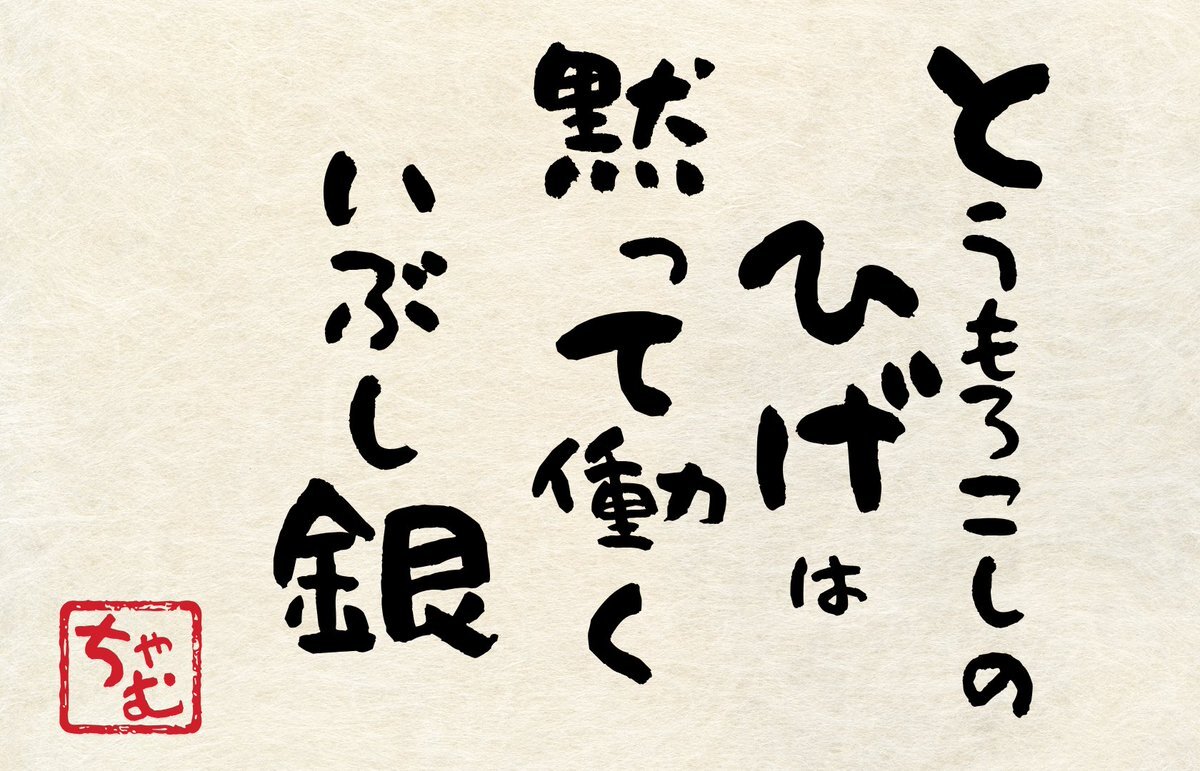 とうもろこしの
ひげは
黙って働く
いぶし銀
ちゃむ